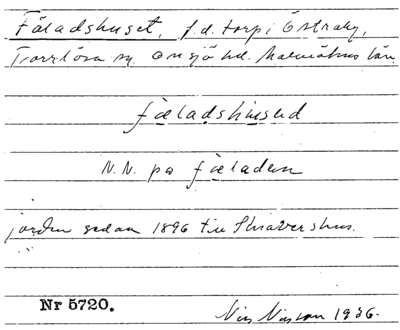 Fäladshuset, f.d. torp i Östraby,
Torrlösa sn. Onsjö hd. Malmöhus län
fæladshused
N.N. på fæladen
jorden sedan 1896 till Skravershus.
Nr 5720.
Nils Nilsson 1936.